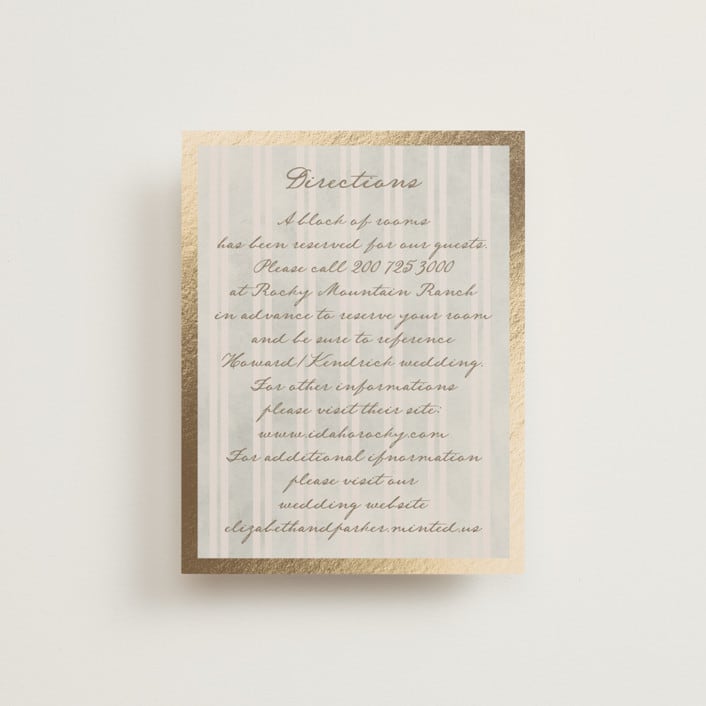 Directions
A block of rooms
has been reserved for our guests.
Please call 200 725 3000
at Rocky Mountain Ranch
in advance to reserve your room
and be sure to reference
Howard/Kendrick wedding.
For other informations
please visit their site:
www.idahorocky.com
For additional ifnormation
please visit our
wedding website
elizabethandparker.minted.us